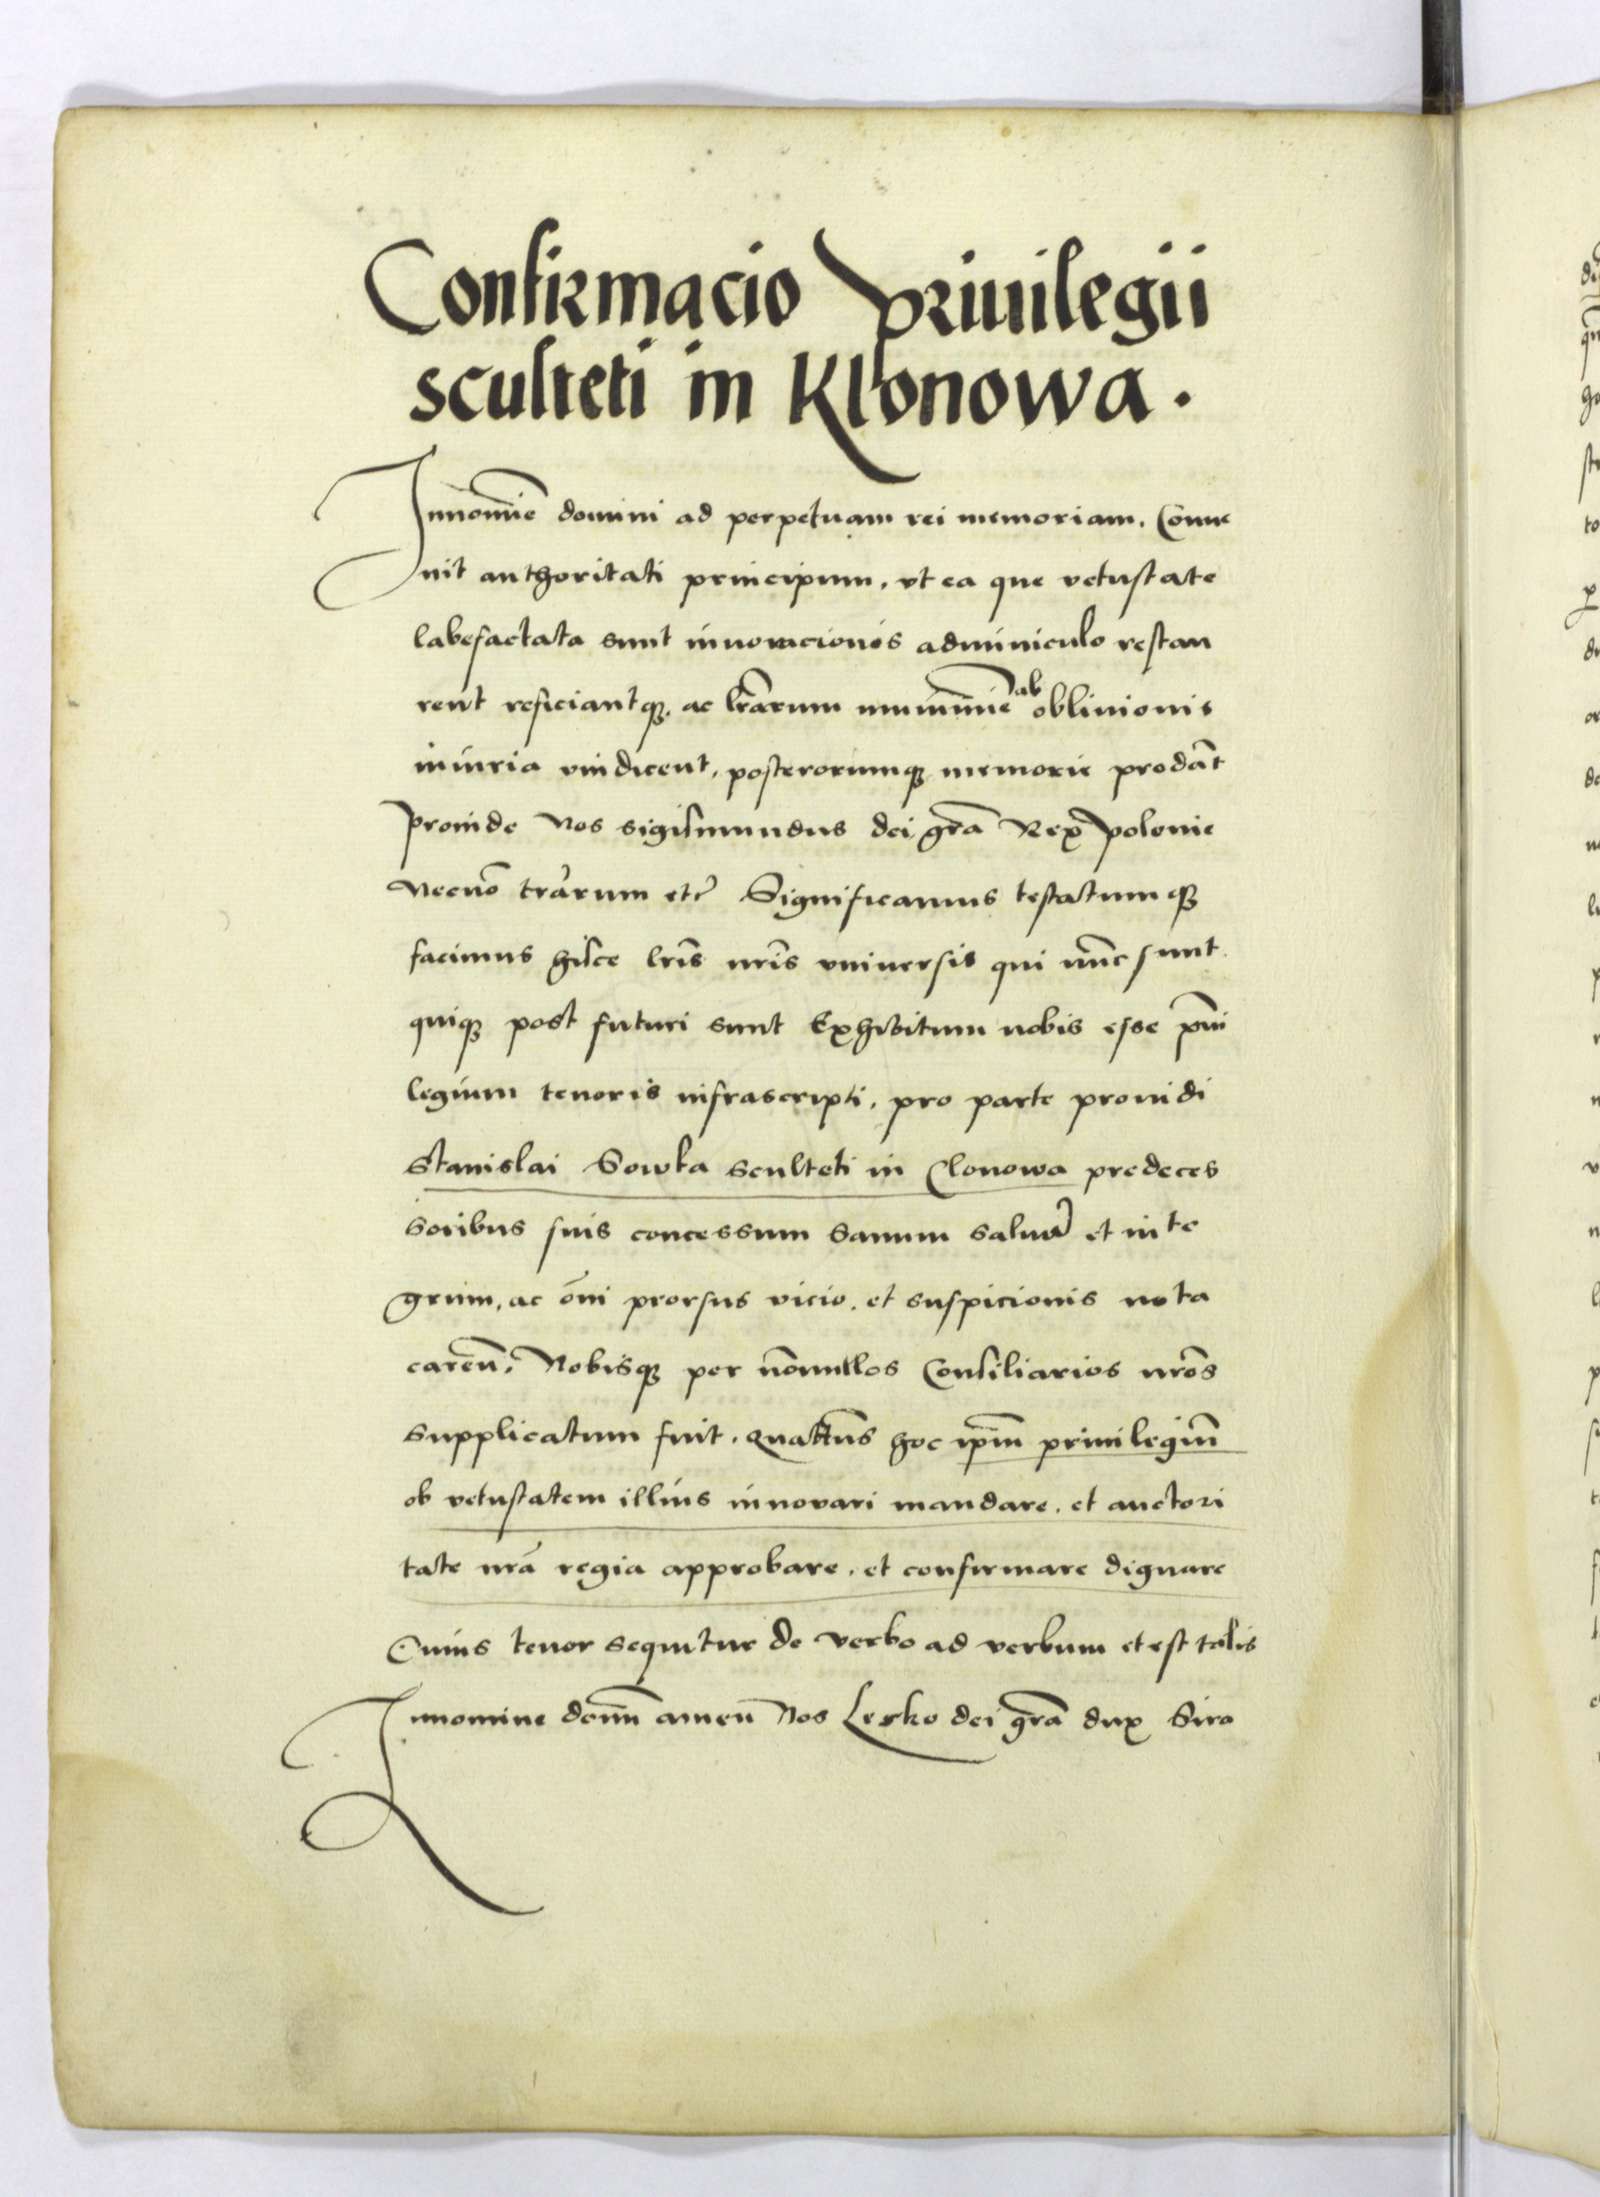 Confirmacio Priuilegii
sculteti in Klonowa.
Innomīe domini ad perpetuam rei memoriam. Conue
nit authoritati principum, vt ea que vetustate
labefactata sunt innovacionis adminiculo restau
rent reficiantqꝫ, ac lr̄arum munimīe ab obliuionis
iniuria vindicent, posterorumqꝫ memorie prodāt
Proinde Nos Sigismundus dei gr̄a Rex Polonie
Necnō trārum etc̄ Significamus testatumqꝫ
facimus hisce lr̄is nr̄is vniuersis qui nūc sunt
quiqꝫ post futuri sunt Exhibitum nobis esse p̄ui
legium tenoris infrascripti, pro parte prouidi
Stanislai Sowka sculteti in Clonowa predeces
soribus suis concessum sanum saluū et inte
grum, ac ōni prorsus vicio, et suspicionis nota
careñ, Nobisqꝫ per nōnullos Consiliarios nr̄os
supplicatum fuit, quatt̄us hoc ip̄m priuilegiū
ob vetustatem illius innovari mandare, et auctori
tate nr̄a regia approbare, et confirmare dignare
Cuius tenor sequitur de verbo ad verbum et est talis
Innomine domī amen Nos Lesko dei gr̄a dux Sira